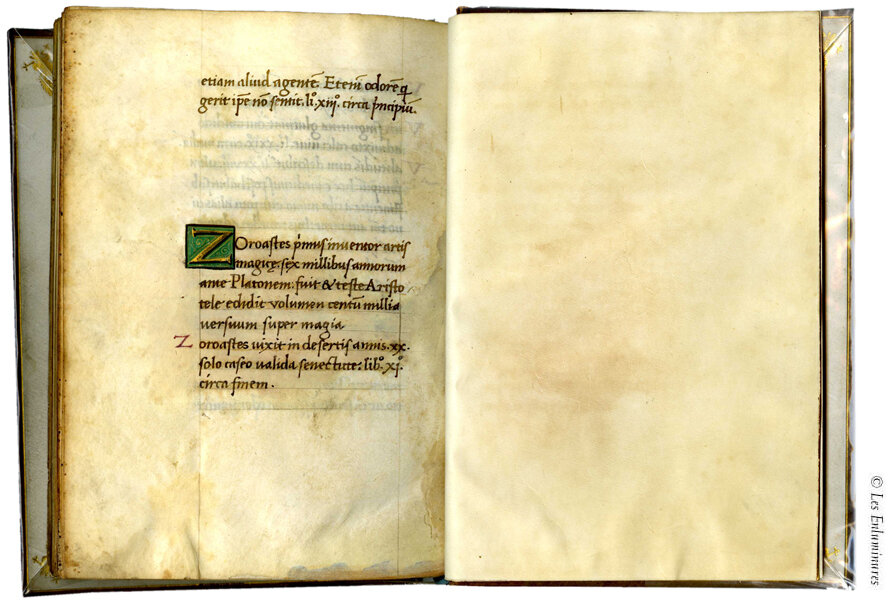 etiam aliud agentē. Etenī odorē q̄
gerit ip̄e nō sentit. li°. xiii°. circa p̄ncipiū.
ZOroastes p̄mus inuentor artis
magicę: sex millibus annorum
ante Platonem. fuit & teste Aristo
tele edidit volumen centū millia
versuum super magia
Zoroastes vixit in desertis annis. xx.
solo caseo valida senectute: lib°. xi°.
circa finem.
© Les Enluminures